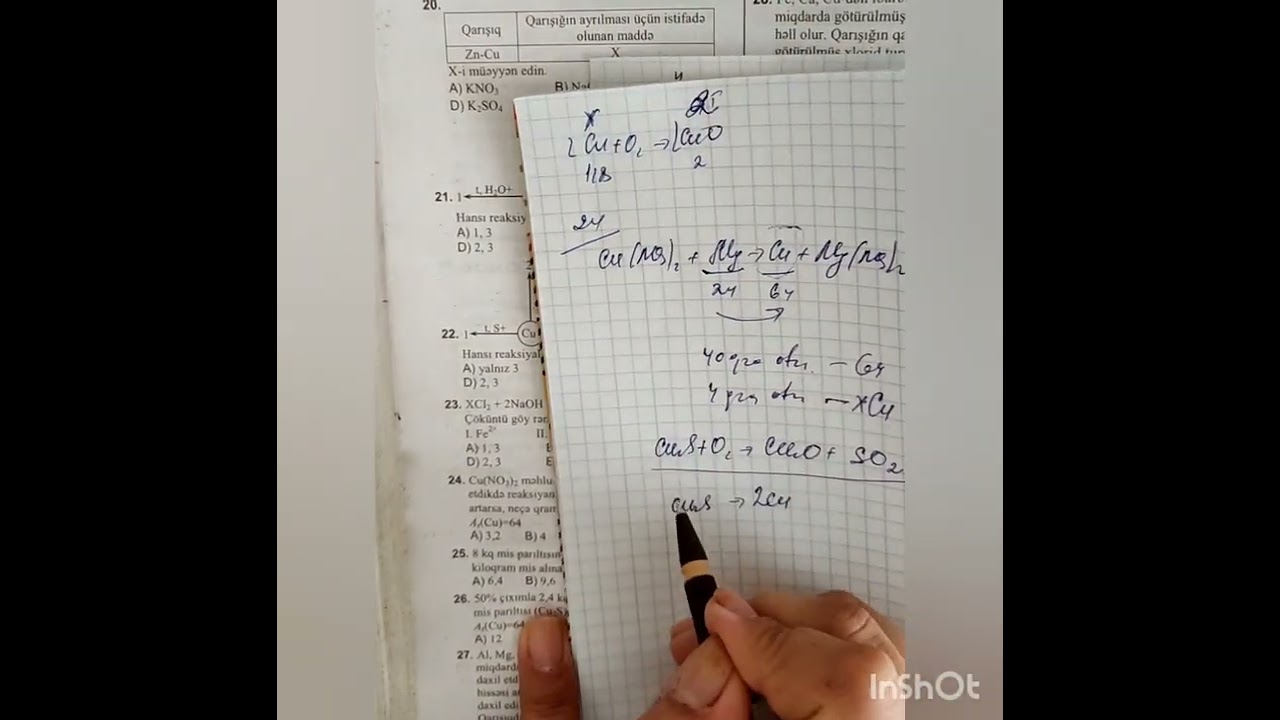 20.
Qarışıq
Qarışığın ayrılması üçün istifadə
olunan maddə
Zn-Cu
X
X-i müəyyən edin.
A) KNO₃ B)
D) K₂SO₄
21. 1 t, H₂O+
Hansı reaksiy
A) 1, 3
D) 2, 3
22. 1 t, S+ Cu
Hansı reaksiyal
A) yalnız 3
D) 2, 3
23. XCl₂ + 2NaOH
Çöküntü göy rən
I. Fe²⁺ II.
A) 1, 3
D) 2, 3
24. Cu(NO₃)₂ məhlu
etdikdə reaksiyan
artarsa, neçə qram
Aᵣ(Cu)=64
A) 3,2 B) 4
25. 8 kq mis parıltısın
kiloqram mis alına
A) 6,4 B) 9,6
26. 50% çıxımla 2,4 kq
mis parıltısı (Cu₂S)
Aᵣ(Cu)=64
A) 12
27. Al, Mg,
miqdard
daxil etd
hissəsi a
daxil edi
miqdarda götürülmüş
həll olur. Qarışığın qa
götürülmüş xlorid tur
2Cu+O₂→2CuO
128
2
24
Cu(NO₃)₂ + Mg → Cu + Mg(NO₃)₂
24 64
40 qra atr. – 64
4 qra atr – xCu
CuS+O₂→CuO+ SO₂
→ 2Cu
InShOt